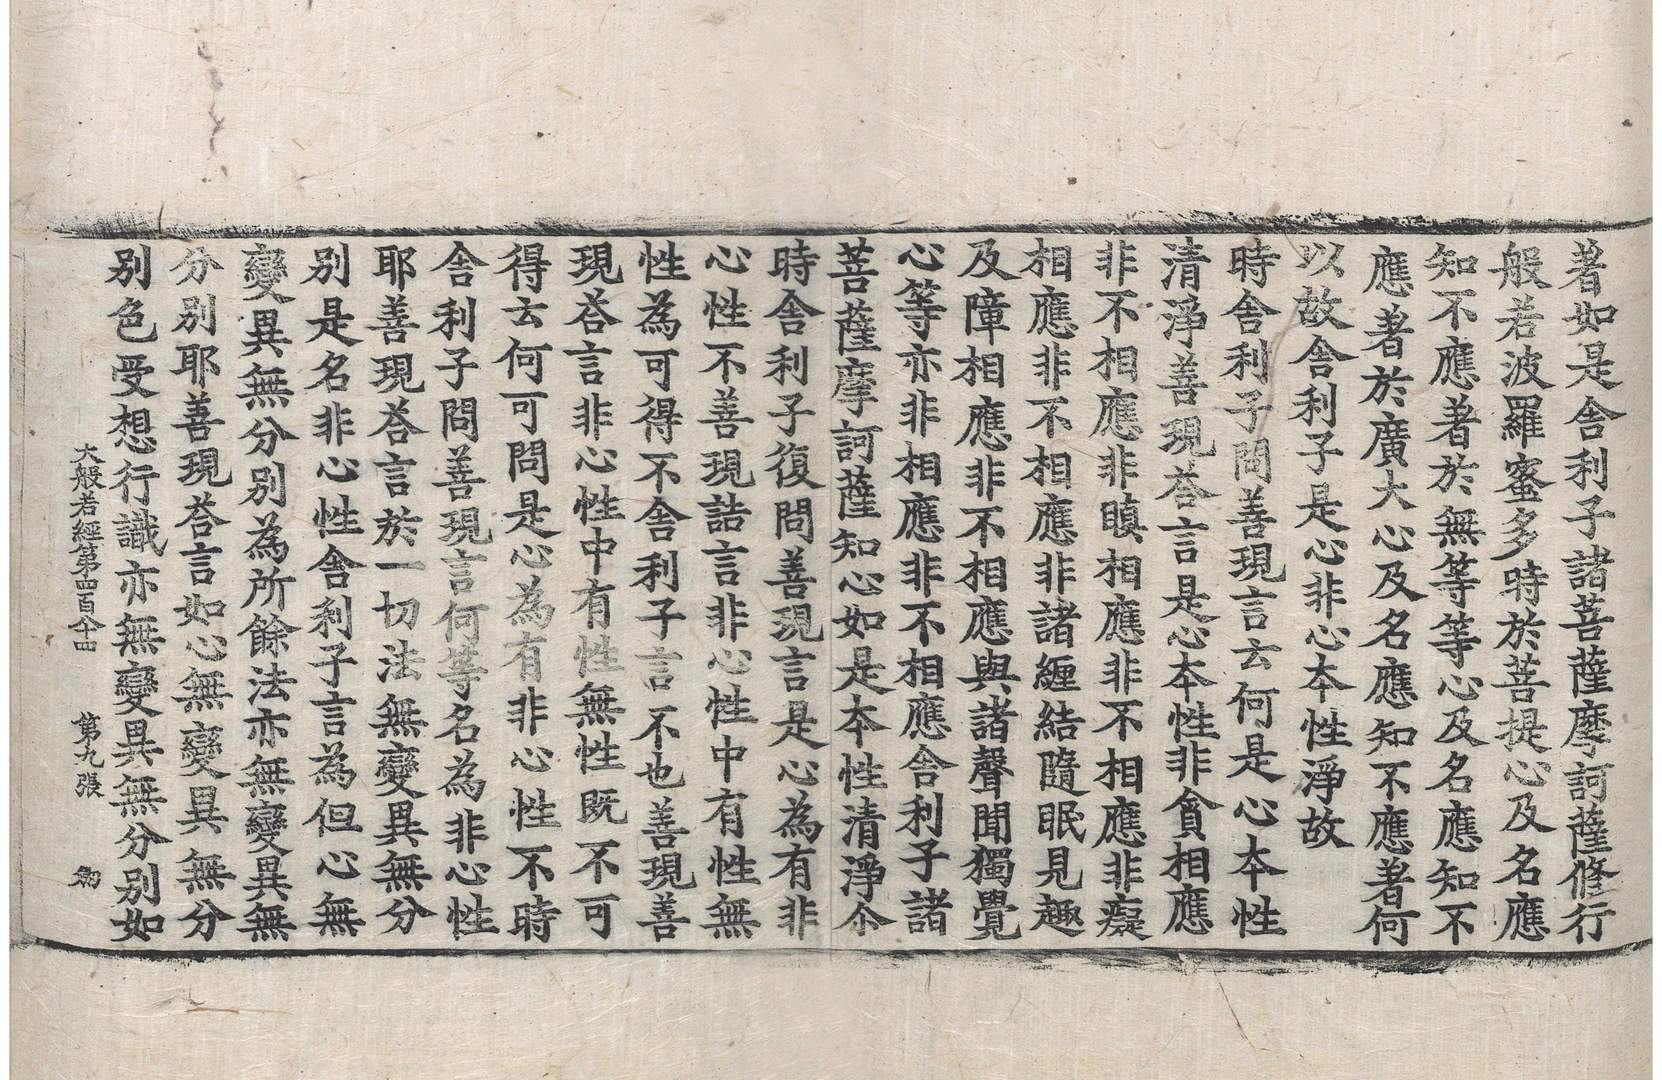 著如是舍利子諸菩薩摩訶薩修行
般若波羅蜜多時於菩提心及名應
知不應著於無等等心及名應知不
應著於廣大心及名應知不應著何
以故舍利子是心非心本性淨故
時舍利子問善現言云何是心本性
清淨善現荅言是心本性非貪相應
非不相應非瞋相應非不相應非癡
相應非不相應非諸纏結隨眠見趣
及障相應非不相應與諸聲聞獨覺
心等亦非相應非不相應舍利子諸
菩薩摩訶薩知心如是本性清淨尒
時舍利子復問善現言是心為有非
心性不善現詰言非心性中有性無
性為可得不舍利子言不也善現善
現荅言非心性中有性無性既不可
得云何可問是心為有非心性不時
舍利子問善現言何等名為非心性
耶善現荅言於一切法無變異無分
別是名非心性舍利子言為但心無
變異無分別為所餘法亦無變異無
分別耶善現荅言如心無變異無分
別色受想行識亦無變異無分別如
大般若經第四百八十四 第九張